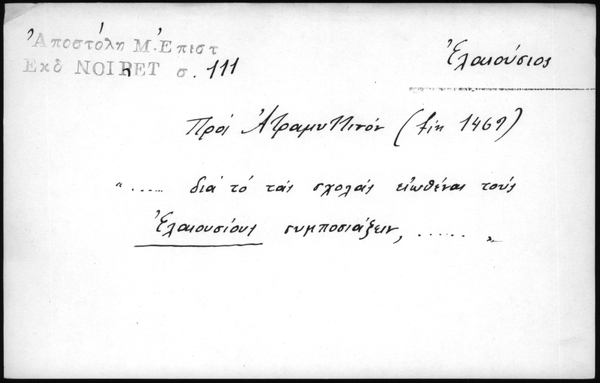 Ἀποστόλη Μ. Ἐπιστ
Ἐκδ NOIRET σ. 111
Ἐλαιούσιος
Πρὸς Ἀτραμυττινόν (fin 1469)
"..... διὰ τὸ τὰς σχολὰς εἰωθέναι τοὺς
Ἐλαιουσίους συμποσιάζειν, ..... "